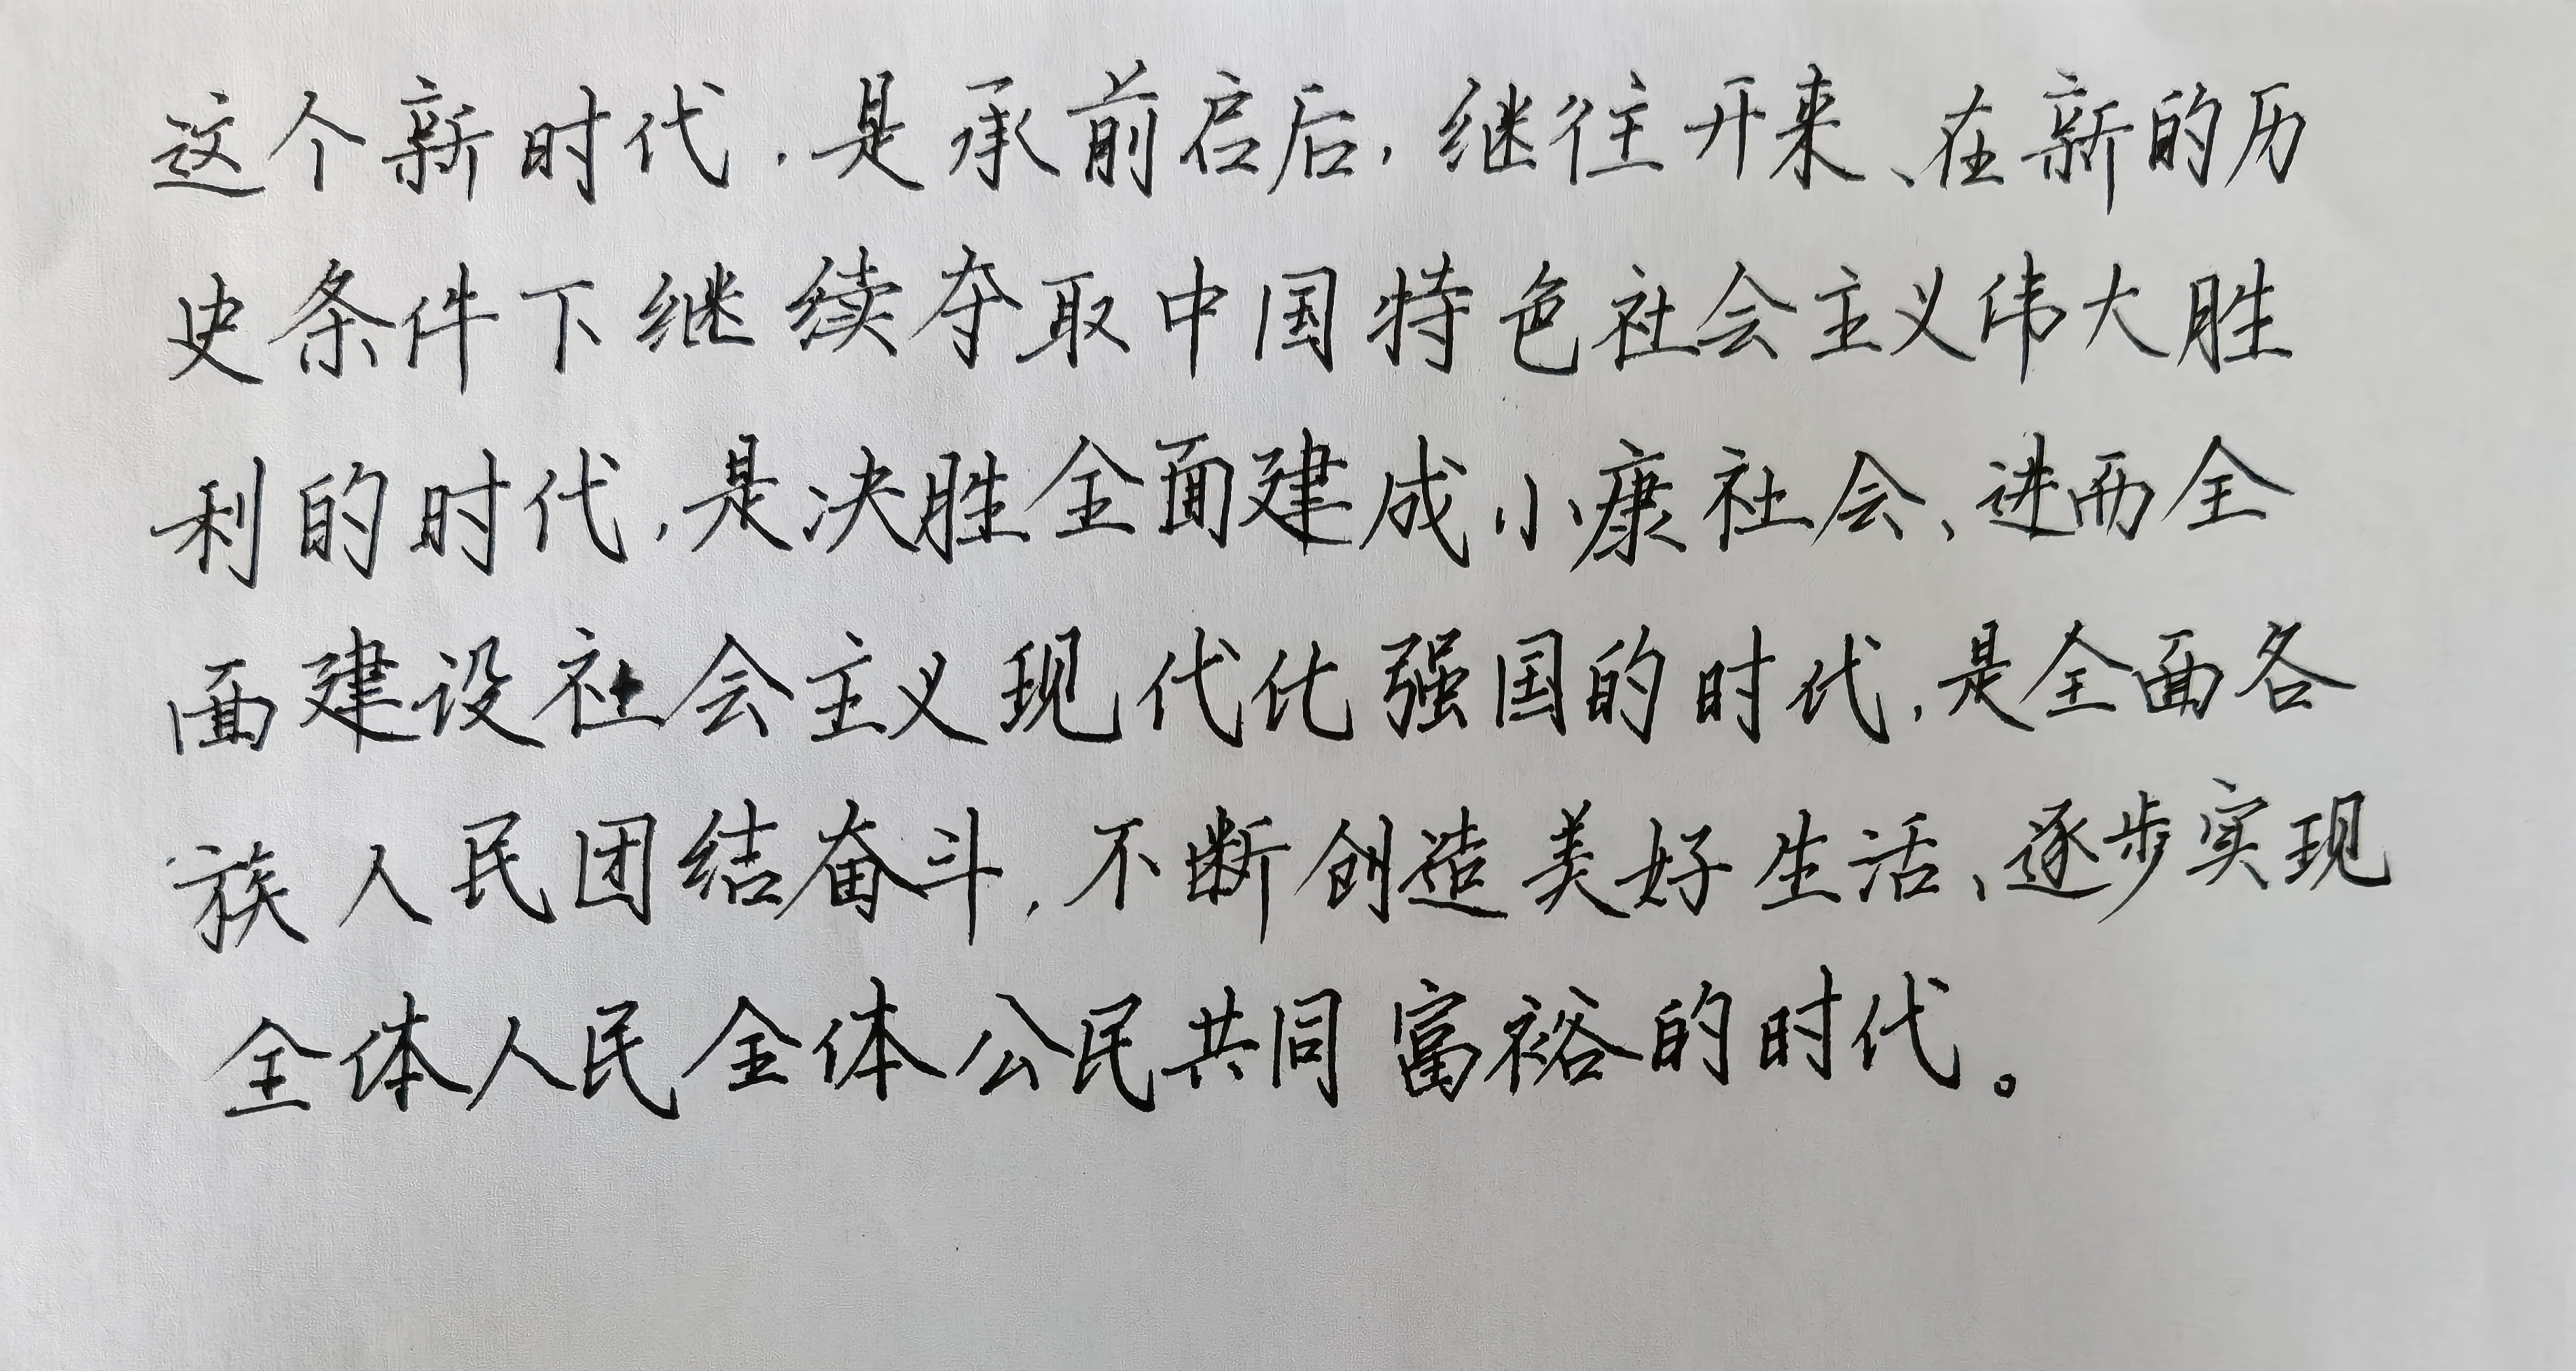 这个新时代,是承前启后,继往开来、在新的历
史条件下继续夺取中国特色社会主义伟大胜
利的时代,是决胜全面建成小康社会、进而全
面建设社会主义现代化强国的时代,是全面各
族人民团结奋斗,不断创造美好生活、逐步实现
全体人民全体公民共同富裕的时代。